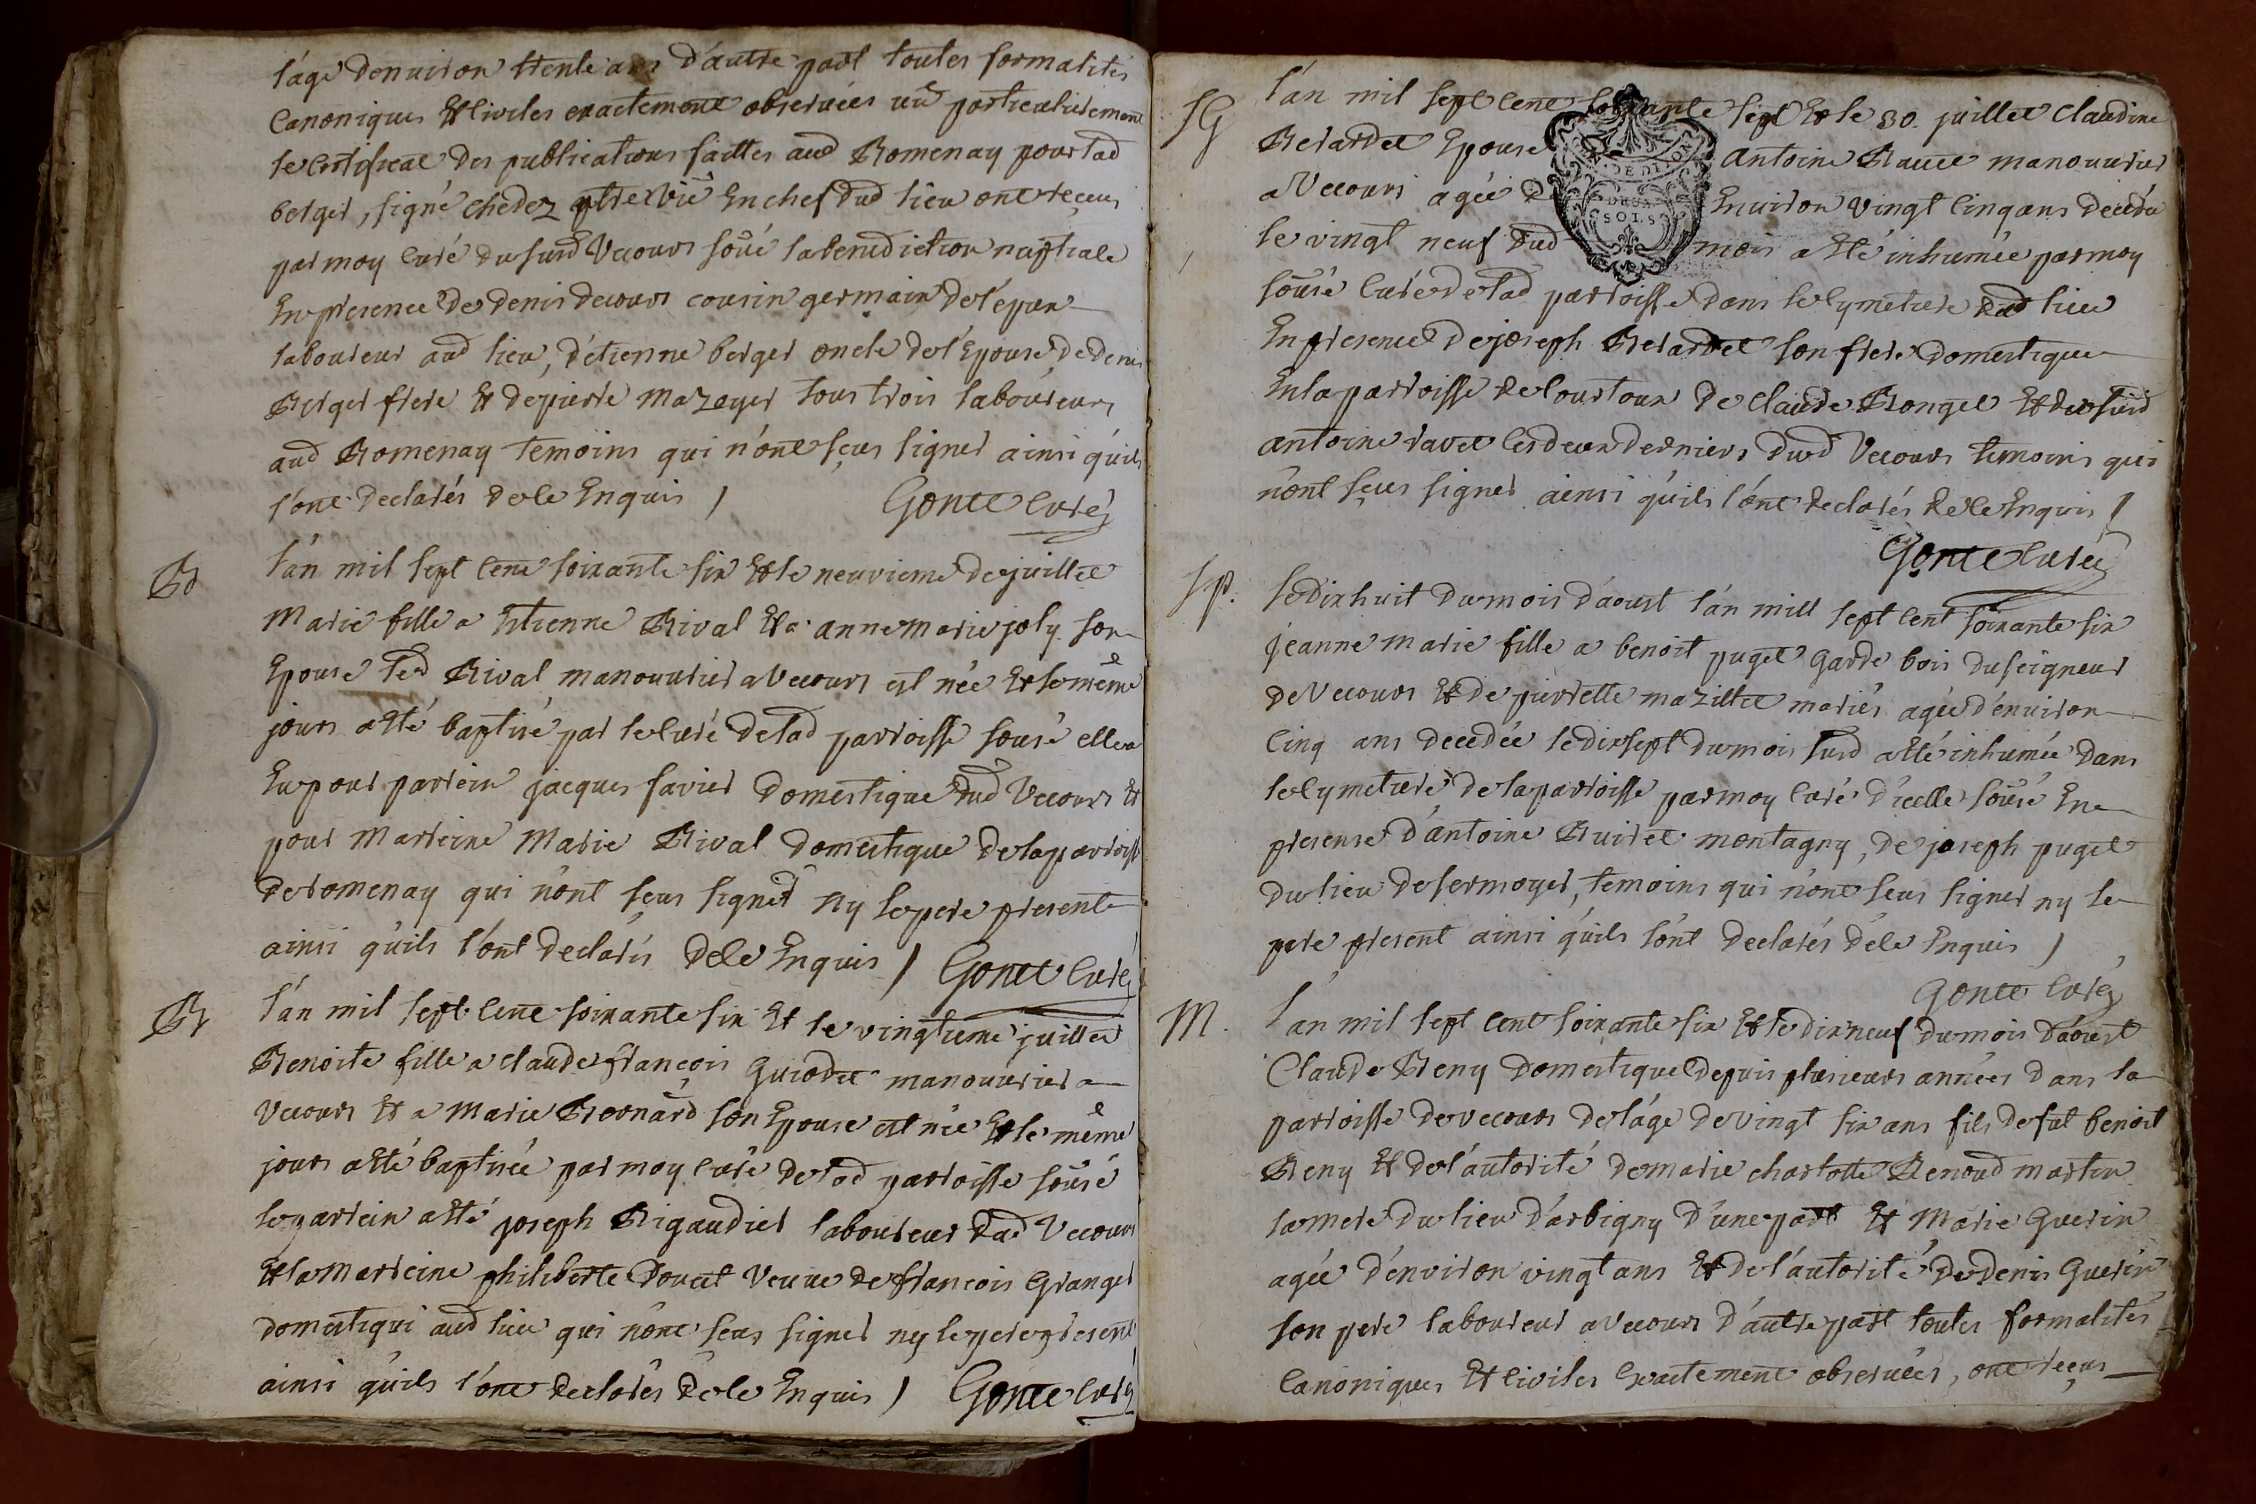 l'age denviron trente ans d'autre part toutes formalités
Canoniques Et Civiles exactement observées vû particulierement
le Certificat des publications faittes aud Romenay pour lad
berger, signé chedez ptre vic En chef dud lieu ont reçeus
par moy Curé du susd Vecours sousé la benediction nuptiale
En presence de denis decours cousin germain de l'époux
laboureur aud lieu, d'etienne berger oncle de l'Epouse, de denis
Berger frere Et de pierre mazoyer tous trois laboureurs
aud Romenay temoins qui n'ont sçeus signer ainsi qu'ils
l'ont declarés de le Enquis / Gonet Curé
Bd
l'an mil sept Cent soixante six Et le neuvieme de juillet
Marie fille a Etienne Rival Et a anne marie joly son
Epouse led Rival manouvrier a Vecours est née Et le même
jours a Eté baptisé par le Curé de lad parroisse sousé elle a
Eu pour parrein jacques favier domestique dud Vecours Et
pour Marreine Marie Rival domestique de la parroisse
de romenay qui n'ont sçeus signer ny le pere present
ainsi qu'ils l'ont declarés de le Enquis / Gonet Curé
l'an mil sept Cent soixante six Et le vingtieme juillet
Benoite fille a claude françois Guiodet manouvrier a
Vecours Et a Marie Bronard son Epouse est née Et le même
jours a Eté baptisée par moy Curé de lad parroisse sousé
le parrein a Eté joseph Rigaudier laboureur dud Vecours
Et la Marreine philiberte Douet Veuve de françois Granger
domestiqui aud lieu qui n'ont sçeus signer ny le pere present
ainsi qu'ils l'ont declarés de le Enquis / Gonet Curé
SG
l'an mil sept Cent soixante sept Et le 30 juillet Claudine
Berardet Epouse antoine Ravet manouvrier
a Vecours agée d' Environ vingt Cinq ans decedée
le vingt neuf dud mois a Eté inhumée par moy
sousé Curé de lad parroisse dans le Cymetiere dud lieu
En presence de joseph Berardet son frere domestique
En la parroisse de Courtoux de Claude Rongel Et du susd
antoine ravet les deux derniers dud Vecours temoins qui
n'ont sçeus signer ainsi qu'ils l'ont declarés de le Enquis /
Gonet Curé
SP.
le dix huit du mois d'aoust l'an mill sept Cent soixante six
jeanne marie fille a benoit puget Garde bois du seigneur
de Vecours Et de pierrette mazillet mariés agée d'environ
Cinq ans decedée le dix sept du mois susd a Eté inhumée dans
le Cymetiere de la parroisse par moy Curé d'icelle sousé En
presence d'antoine Buiret montagny, de joseph puget
du lieu de sermoyer, temoins qui n'ont sçeus signer ny le
pere present ainsi qu'ils l'ont declarés de le Enquis /
Gonet Curé
M.
L'an mil sept Cent soixante six Et le dix neuf du mois d'aoust
Claude Beny domestique depuis plusieurs années dans la
parroisse de vecours de l'age de vingt six ans fils de fut benoit
Beny Et de l'autorité de marie charlotte Renoud martin
sa mere du lieu d'arbigny d'une part Et Marie Guerin
agée d'environ vingt ans Et de l'autorité de denis Guerin
son pere laboureur a Vecours d'autre part toutes formalités
Canoniques Et Civiles Exactement observées, ont reçus